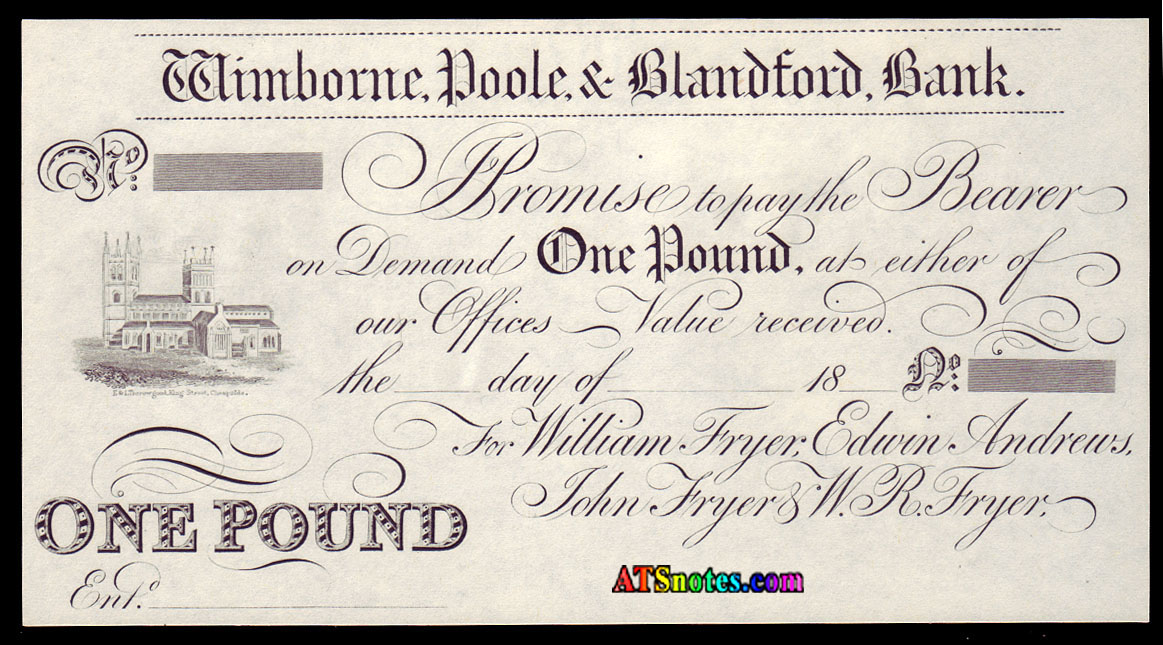 Wimborne, Poole, & Blandford, Bank.
No:
I Promise to pay the Bearer
on Demand One Pound, at either of
our Offices Value received.
the day of 18 No:
King Street, Cheapside.
For William Fryer, Edwin Andrews,
John Fryer & W. R. Fryer.
ONE POUND
Ent.d
ATSnotes.com